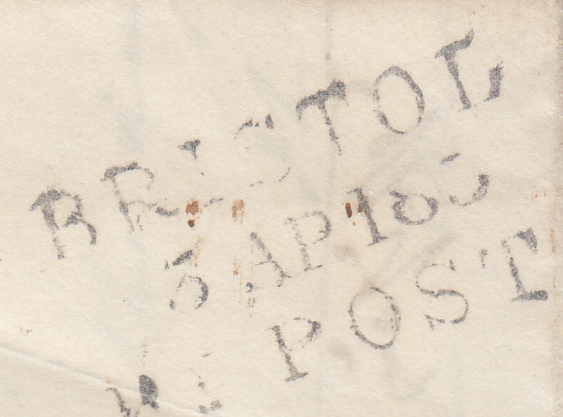 BRISTOL
3 AP 183
POST